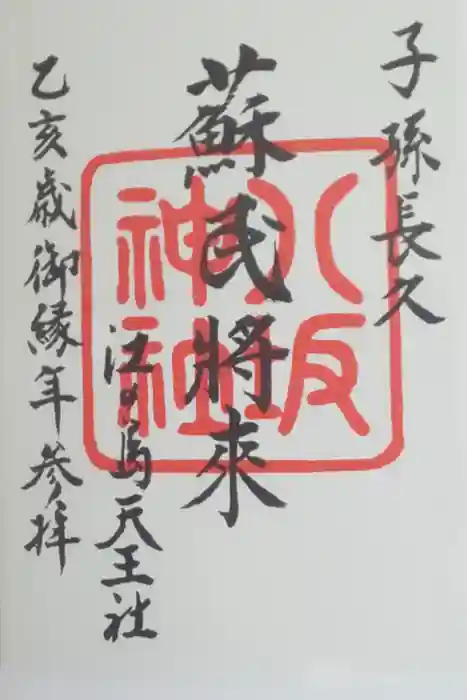 子孫長久
蘇民將來
江の島天王社
乙亥歳御縁年参拝
八坂神社